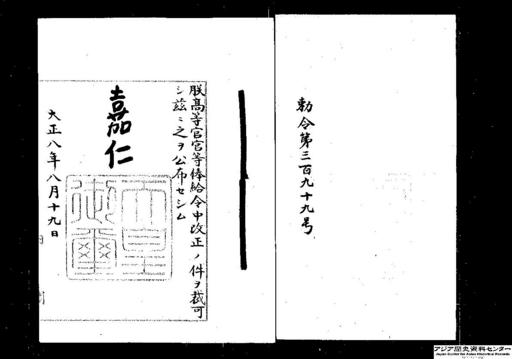 勅令第三百九十九号
朕高等官官等俸給令中改正ノ件ヲ裁可
シ茲ニ之ヲ公布セシム
嘉仁
天皇
御璽
大正八年八月十九日
アジア歴史資料センター
Japan Center for Asian Historical Records